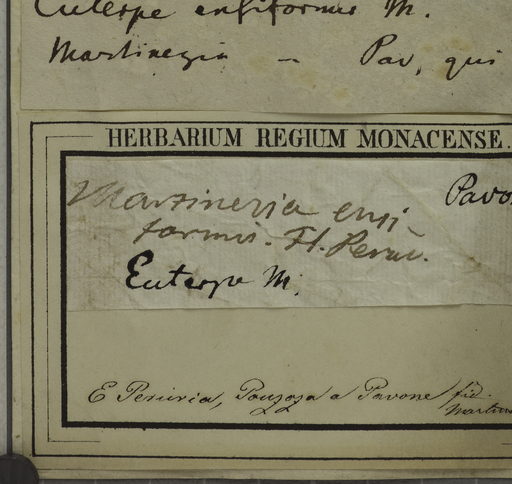 Euterpe ensiformis M.
Martinezia – Pav, qui
HERBARIUM REGIUM MONACENSE.
Martinezia ensi Pavo
formis. Fl. Peruv.
Euterpe M.
E Peruvia, Pouzozo a Pavone fid.
Martius